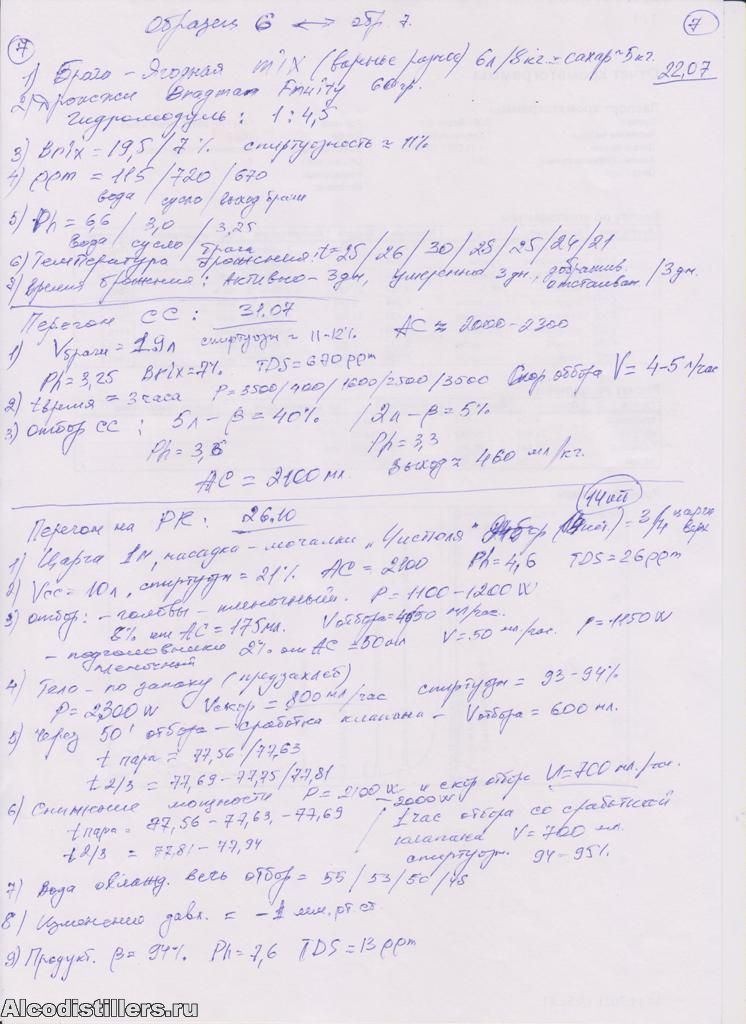 Образец 6 ↔ обр. 7.
7
7
1) Брага - Ягодная mix (варенье разное) 6л/8кг. + сахар ~5кг.
22,07
2) Дрожжи Fruity 60гр.
Гидромодуль: 1:4,5
3) Brix = 19,5/7% спиртуозность ≈ 11%
4) ppm = 115/720/670
вода / сусло / выход браги
5) Ph = 6,6 / 3,0 / 3,25
вода / сусло / брага
6) Температура брожения: t = 25/26/30/25/25/24/21
7) Время брожения: Активно - 3дн, умеренно 3дн, отстаиван. / 3дн.
Перегон СС: 31.07
1) Vбраги = 19л спиртуозн ≈ 11-12% АС ≈ 2000-2300
Ph = 3,25 Brix = 7% TDS = 670ppm
2) tвремя = 3 часа P = 3500/400/1600/2500/3500 Скор. отбора V = 4-5 л/час
3) отбор СС: 5л - β = 40% / 2л - β = 5%
Ph = 3,6 Ph = 3,3
АС = 2100 мл. Выход ≈ 460 мл/кг.
14шт
Перегон на РК: 26.10
1) Царга 1м, насадка - мочалки "Чистюля" = 3/4 царги верх
2) Vсс = 10л, спиртуозн = 21% АС = 2100 Ph = 4,6 TDS = 26ppm
3) отбор: - головы - пленочный. P = 1100-1200W
8% от АС = 175мл. Vотбора = 50 мл/час.
- подголовники 2% от АС = 50мл V = 50 мл/час. P = 1150W
пленочный
4) Тело - по запаху (предзахлеб)
P = 2300W Vскор = 800мл/час спиртуозн = 93-94%
5) Через 50' отбора - сработка клапана - Vотбора = 600 мл.
t пара = 77,56/77,63
t 2/3 = 77,69-77,75/77,81
6) Снижение мощности P = 2100W и скор отбора V = 700 мл/час.
-2000W
t пара = 77,56-77,63,-77,69 / 1 час отбора со сработкой
клапана V = 700 мл.
t 2/3 = 77,81-77,94 спиртуозн. 94-95%
7) Вода охлажд. весь отбор = 55/53/50/45
8) Изменение давл. = -1 мм.рт.ст
9) Продукт. β = 94% Ph = 7,6 TDS = 13ppm
Alcodistillers.ru